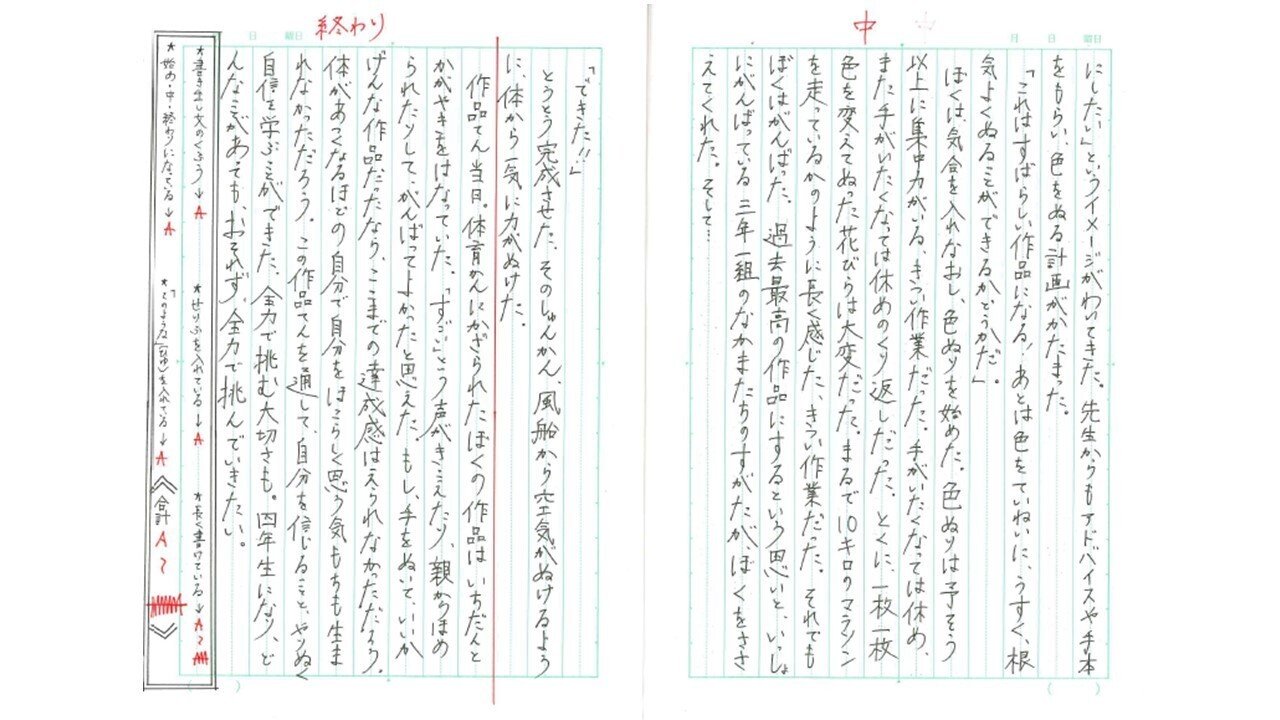 中
月 日 曜日
にしたい」というイメージがわいてきた。先生からもアドバイスや手本
をもらい、色をぬる計画がかたまった。
「これはすばらしい作品になる!あとは色をていねいに、うすく、根
気よくぬることができるかどうかだ」。
ぼくは、気合を入れなおし、色ぬりを始めた。色ぬりは予そう
以上に集中力がいる、きつい作業だった。手がいたくなっては休め、
また手がいたくなっては休めのくり返しだった。とくに、一枚一枚
色を変えてぬった花びらは大変だった。まるで10キロのマラソン
を走っているかのように長く感じた、きつい作業だった。それでも
ぼくはがんばった。過去最高の作品にするという思いと、いっしょ
にがんばっている三年一組のなかまたちのすがたが、ぼくをささ
えてくれた。そして…
「できた!!」
とうとう完成させた、そのしゅんかん、風船から空気がぬけるよう
に、体から一気に力がぬけた。
終わり
日 曜日
作品てん当日。体育かんにかざられたぼくの作品はいちだんと
かがやきをはなっていた。「すごい」という声がきこえたり、親からほめ
られたりして、がんばってよかったと思えた。もし、手をぬいて、いいか
げんな作品だったなら、ここまでの達成感はえられなかっただろう。
体があつくなるほどの自分で自分をほこらしく思う気もちも生ま
れなかっただろう。この作品てんを通して、自分を信じること、やりぬく
自信を学ぶことができた、全力で挑む大切さも。四年生になり、ど
んなことがあっても、おそれず、全力で挑んでいきたい。
★書き出し文のくふう→A ★せりふを入れている→A ★長く書けている→A
★始め・中・終わりになっている→A ★「〜のような」(比ゆ)を入れている→A 《合計 A 》